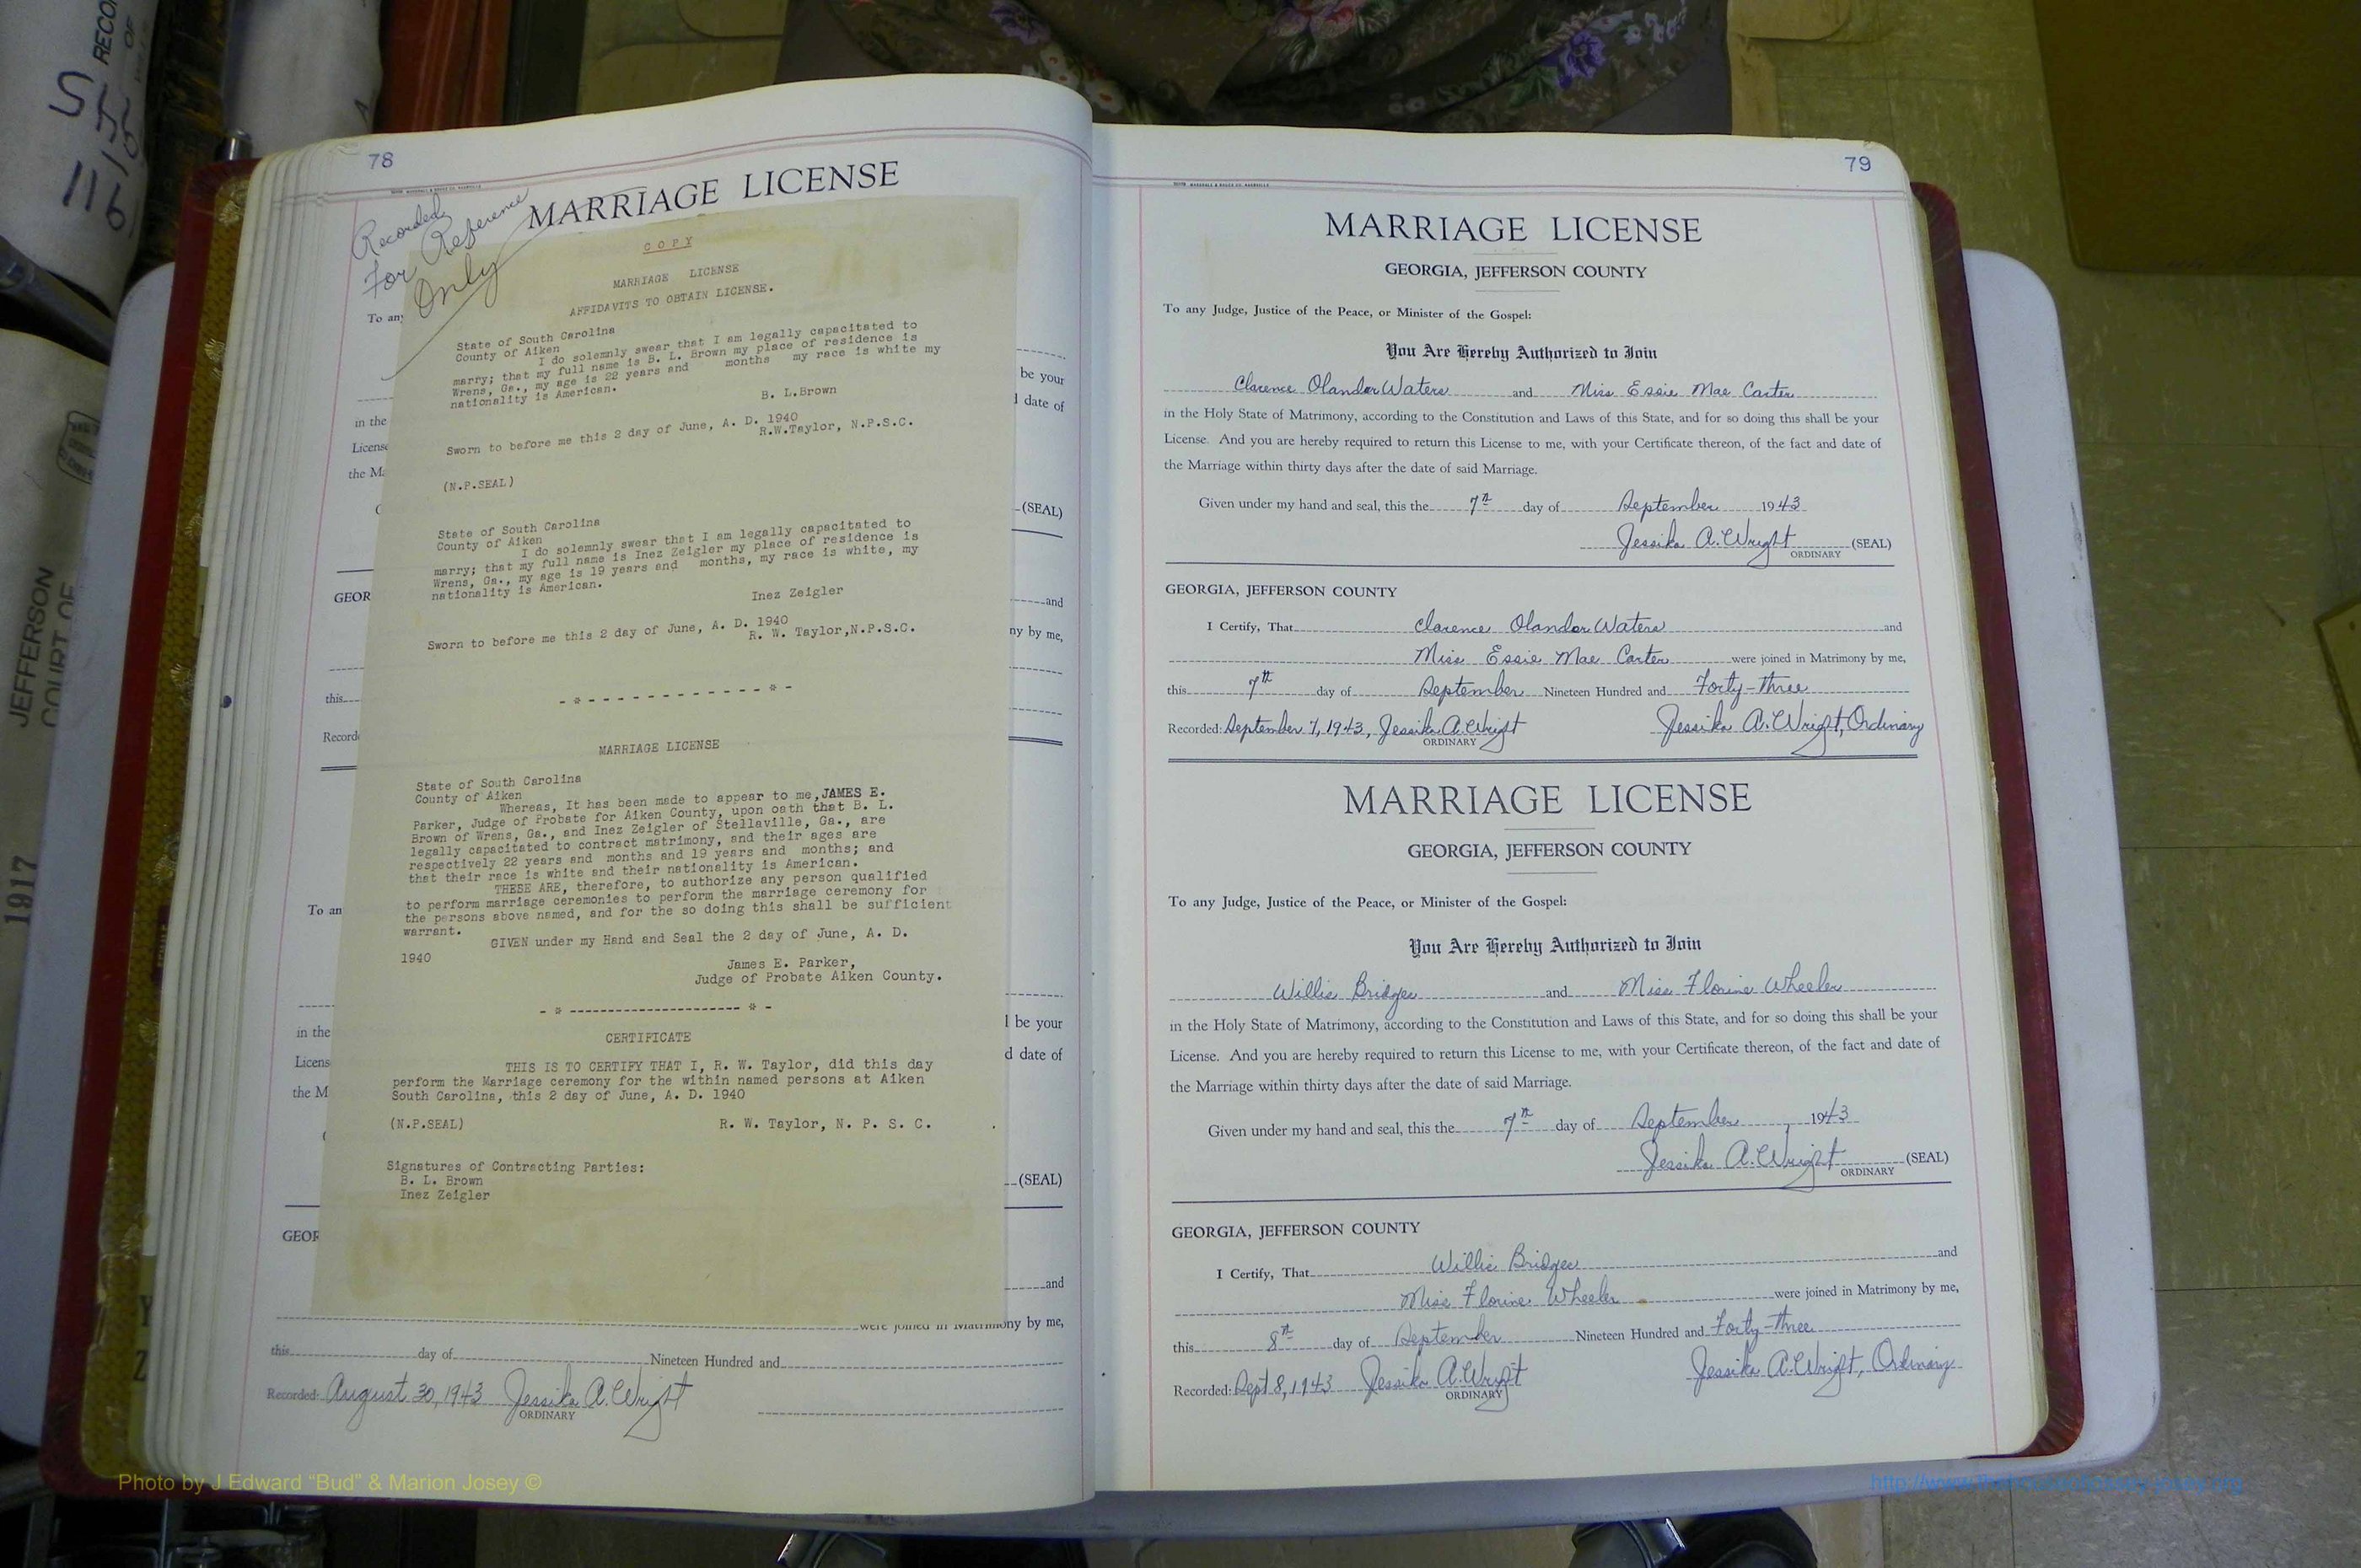 S
RECO
OF
115
JEFFERSON
COURT OF
1917
78
MARRIAGE LICENSE
Recorded
For Reference
Only
COPY
MARRIAGE LICENSE
AFFIDAVITS TO OBTAIN LICENSE.
State of South Carolina
County of Aiken
I do solemnly swear that I am legally capacitated to
marry; that my full name is B. L. Brown my place of residence is
Wrens, Ga., my age is 22 years and months my race is white my
nationality is American.
B. L.Brown
Sworn to before me this 2 day of June, A. D. 1940
R.W.Taylor, N.P.S.C.
(N.P.SEAL)
State of South Carolina
County of Aiken
I do solemnly swear that I am legally capacitated to
marry; that my full name is Inez Zeigler my place of residence is
Wrens, Ga., my age is 19 years and months, my race is white, my
nationality is American.
Inez Zeigler
Sworn to before me this 2 day of June, A. D. 1940
R. W. Taylor,N.P.S.C.
- * - - - - - - - - - - - - - * -
MARRIAGE LICENSE
State of South Carolina
County of Aiken
Whereas, It has been made to appear to me,JAMES E.
Parker, Judge of Probate for Aiken County, upon oath that B. L.
Brown of Wrens, Ga., and Inez Zeigler of Stellaville, Ga., are
legally capacitated to contract matrimony, and their ages are
respectively 22 years and months and 19 years and months; and
that their race is white and their nationality is American.
THESE ARE, therefore, to authorize any person qualified
to perform marriage ceremonies to perform the marriage ceremony for
the persons above named, and for the so doing this shall be sufficient
warrant.
GIVEN under my Hand and Seal the 2 day of June, A. D.
1940
James E. Parker,
Judge of Probate Aiken County.
- * ---------------------- * -
CERTIFICATE
THIS IS TO CERTIFY THAT I, R. W. Taylor, did this day
perform the Marriage ceremony for the within named persons at Aiken
South Carolina, this 2 day of June, A. D. 1940
(N.P.SEAL) R. W. Taylor, N. P. S. C.
Signatures of Contracting Parties:
B. L. Brown
Inez Zeigler
To any
be your
date of
in the
License
the Ma
(SEAL)
GEOR
and
ny by me,
this
Record
To an
in the
be your
Licens
d date of
the M
(SEAL)
GEOR
and
were joined in Matrimony by me,
this day of Nineteen Hundred and
Recorded: August 30, 1943 Jessika A. Wright
ORDINARY
79
MARRIAGE LICENSE
GEORGIA, JEFFERSON COUNTY
To any Judge, Justice of the Peace, or Minister of the Gospel:
You Are Hereby Authorized to Join
Clarence Olander Waters and Miss Essie Mae Carter
in the Holy State of Matrimony, according to the Constitution and Laws of this State, and for so doing this shall be your
License. And you are hereby required to return this License to me, with your Certificate thereon, of the fact and date of
the Marriage within thirty days after the date of said Marriage.
Given under my hand and seal, this the 7th day of September 1943
Jessika A. Wright (SEAL)
ORDINARY
GEORGIA, JEFFERSON COUNTY
I Certify, That Clarence Olander Waters and
Miss Essie Mae Carter were joined in Matrimony by me,
this 7th day of September Nineteen Hundred and Forty-three
Recorded: September 7, 1943, Jessika A. Wright Jessika A. Wright, Ordinary
ORDINARY
MARRIAGE LICENSE
GEORGIA, JEFFERSON COUNTY
To any Judge, Justice of the Peace, or Minister of the Gospel:
You Are Hereby Authorized to Join
Willie Bridges and Miss Florine Wheeler
in the Holy State of Matrimony, according to the Constitution and Laws of this State, and for so doing this shall be your
License. And you are hereby required to return this License to me, with your Certificate thereon, of the fact and date of
the Marriage within thirty days after the date of said Marriage.
Given under my hand and seal, this the 7th day of September 1943
Jessika A. Wright (SEAL)
ORDINARY
GEORGIA, JEFFERSON COUNTY
I Certify, That Willie Bridges and
Miss Florine Wheeler were joined in Matrimony by me,
this 8th day of September Nineteen Hundred and Forty-three
Recorded: Sept 8, 1943 Jessika A. Wright Jessika A. Wright, Ordinary
ORDINARY
Photo by J Edward “Bud” & Marion Josey ©